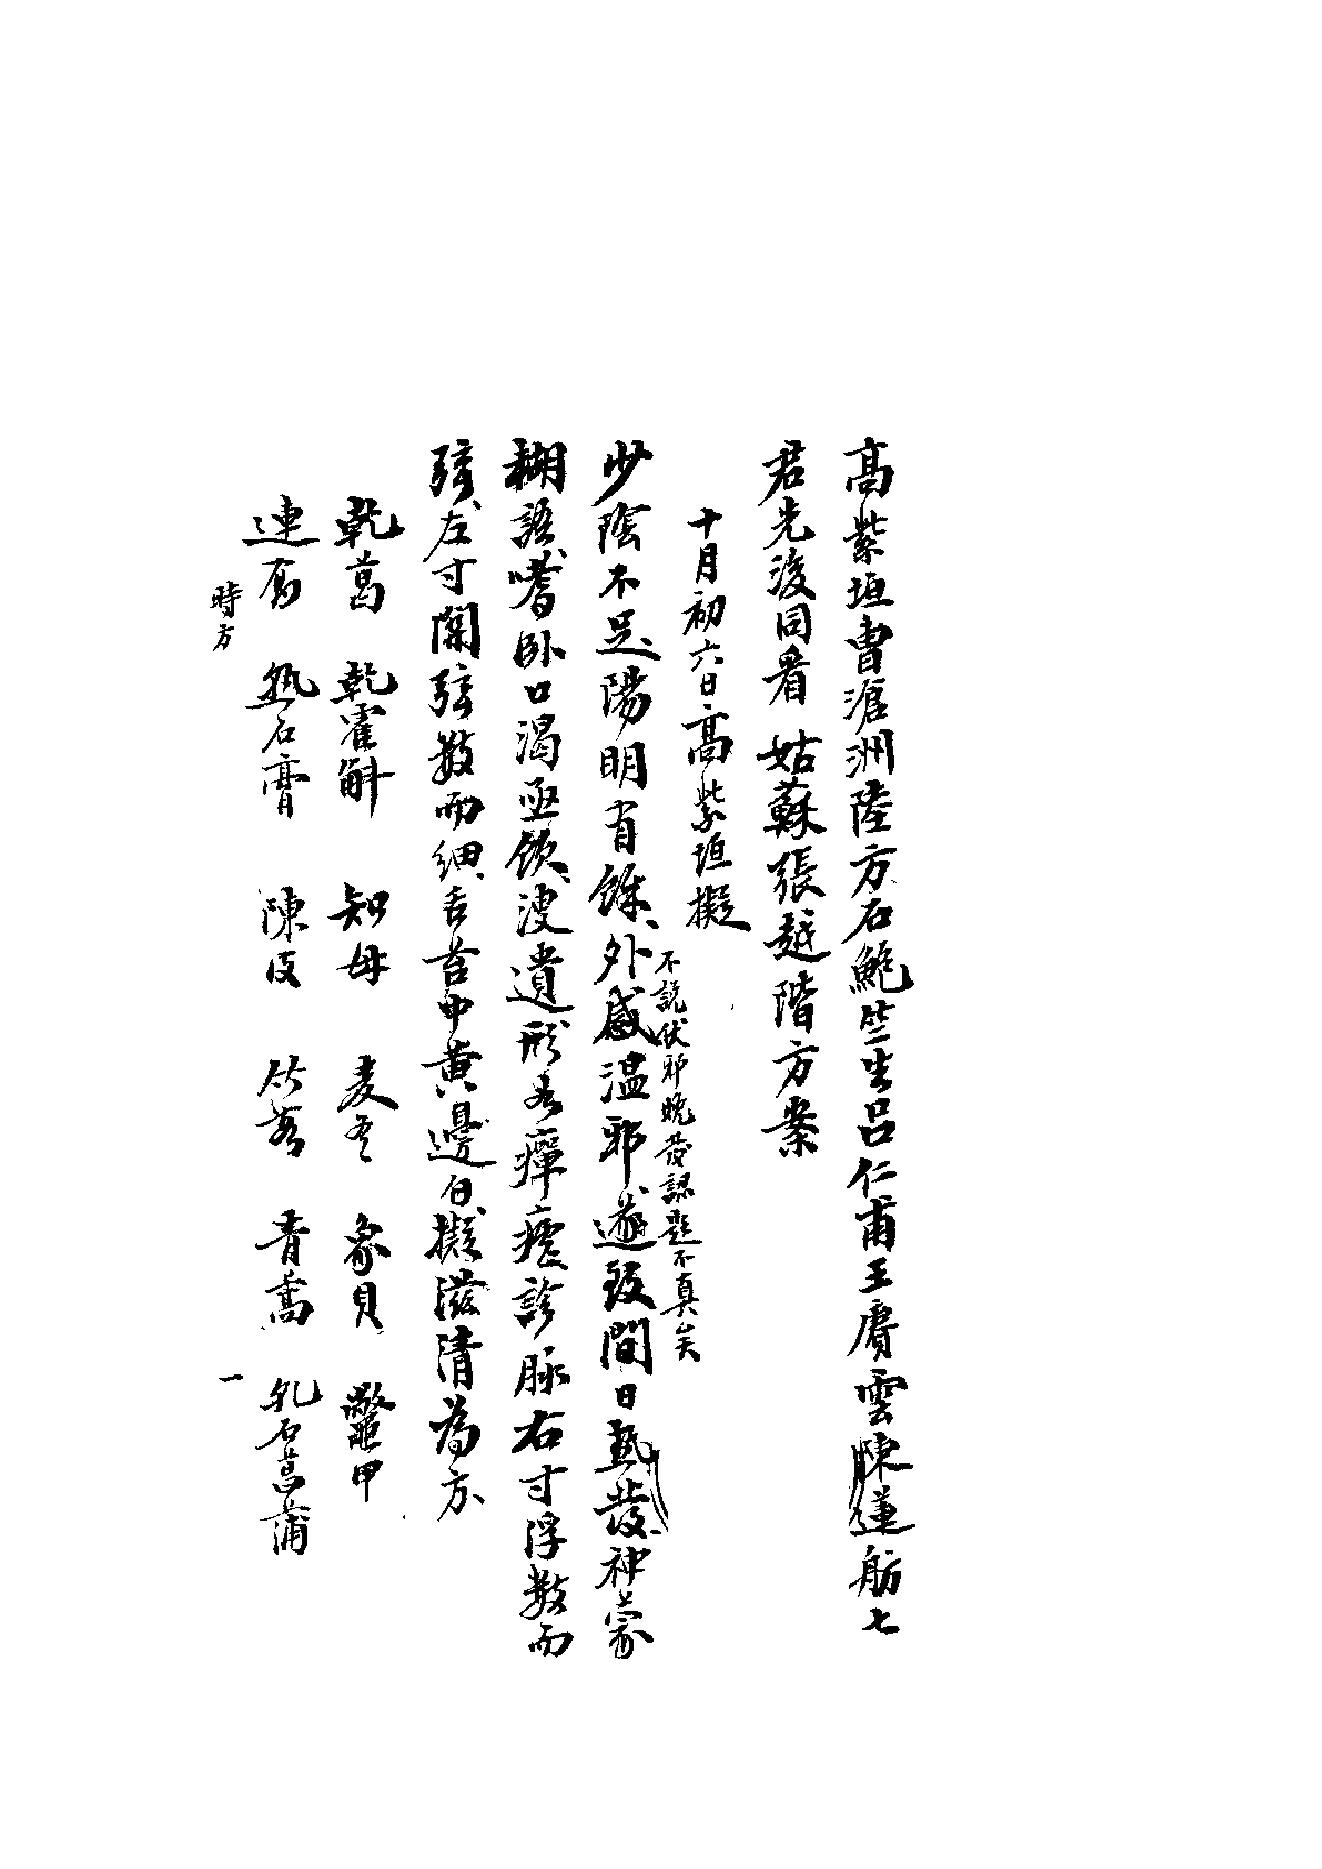 高紫垣曹滄洲陸方石鮑竺生呂仁甫王賡雲陳蓮舫七
君先後同看 姑蘇張越階方案
十月初六日高紫垣擬
不說伏邪晚發認題不真矣
少陰不足、陽明有餘、外感温邪、遂致間日熱發、神蒙
糊語、嗜卧口渴亟飲、溲遺、形為癉瘧、診脉右寸浮數而
弦、左寸關弦數而細、舌苔中黄邊白、擬滋清為方、
乾葛 乾霍斛 知母 麦冬 象貝 鼈甲
連翘 熟石膏 陳皮 竹茹 青蒿 乳石菖蒲
時方 一